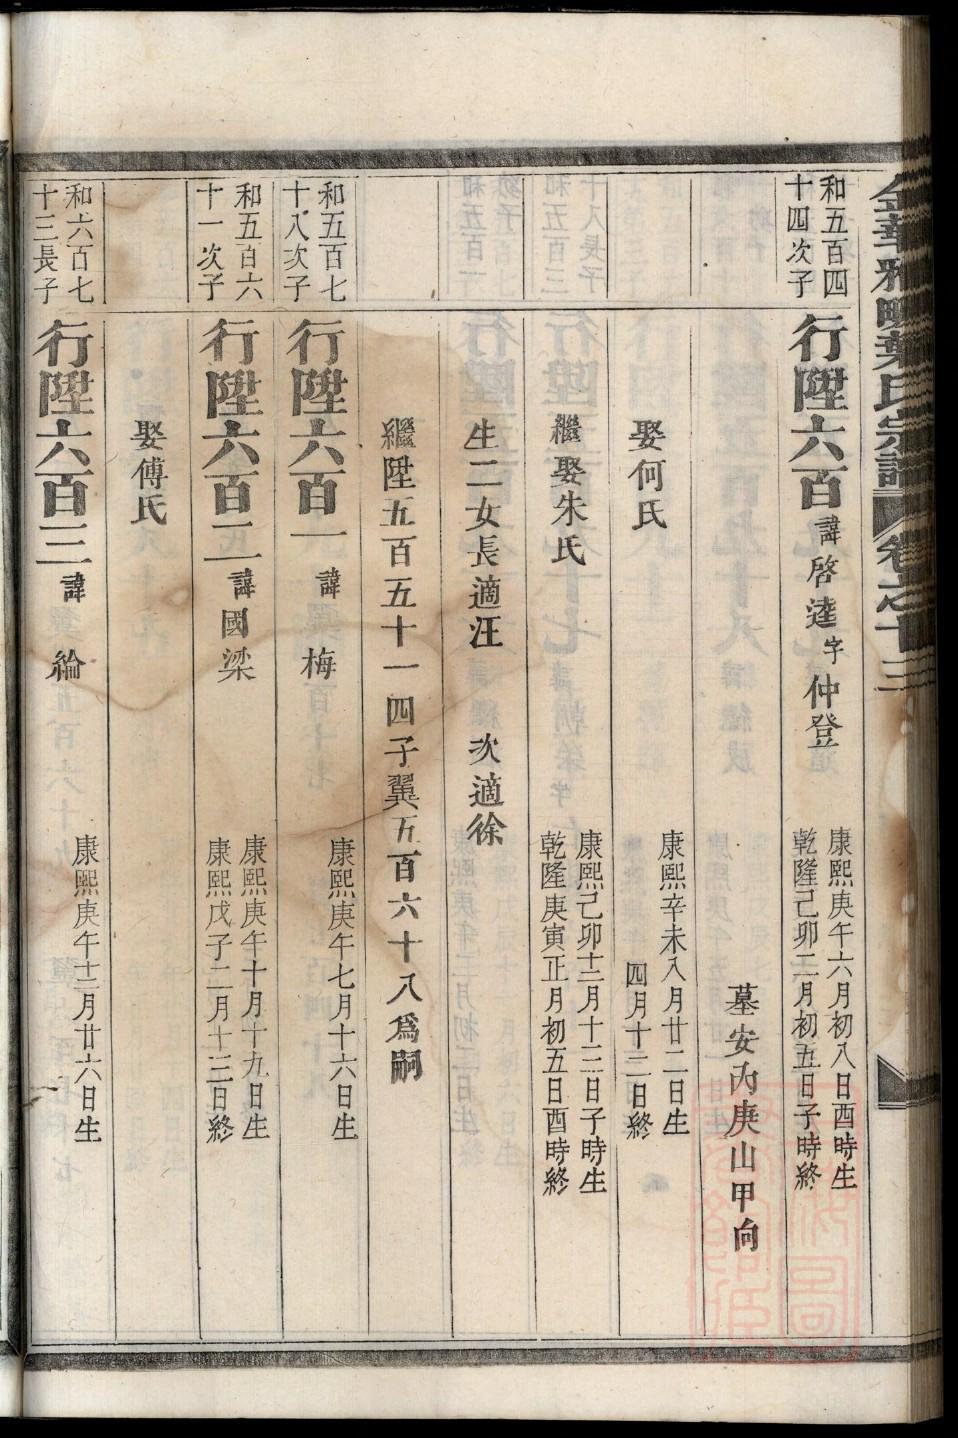 金華雅畈葉氏宗譜 卷之十三
和五百四
十四次子
行陞六百 諱啓達 字仲登
康熙庚午六月初八日酉時生
乾隆己卯二月初五日子時終
墓安內庚山甲向
娶何氏
康熙辛未八月廿二日生
四月十二日終
繼娶朱氏
康熙己卯十二月十二日子時生
乾隆庚寅正月初五日酉時終
生二女長適汪 次適徐
繼陞五百五十一四子翼五百六十八爲嗣
和五百七
十八次子
行陞六百一 諱 梅
康熙庚午七月十六日生
和五百六
十一次子
行陞六百二 諱國梁
康熙庚午十月十九日生
康熙戊子二月十三日終
娶傅氏
和六百七
十三長子
行陞六百三 諱 綸
康熙庚午十二月廿六日生